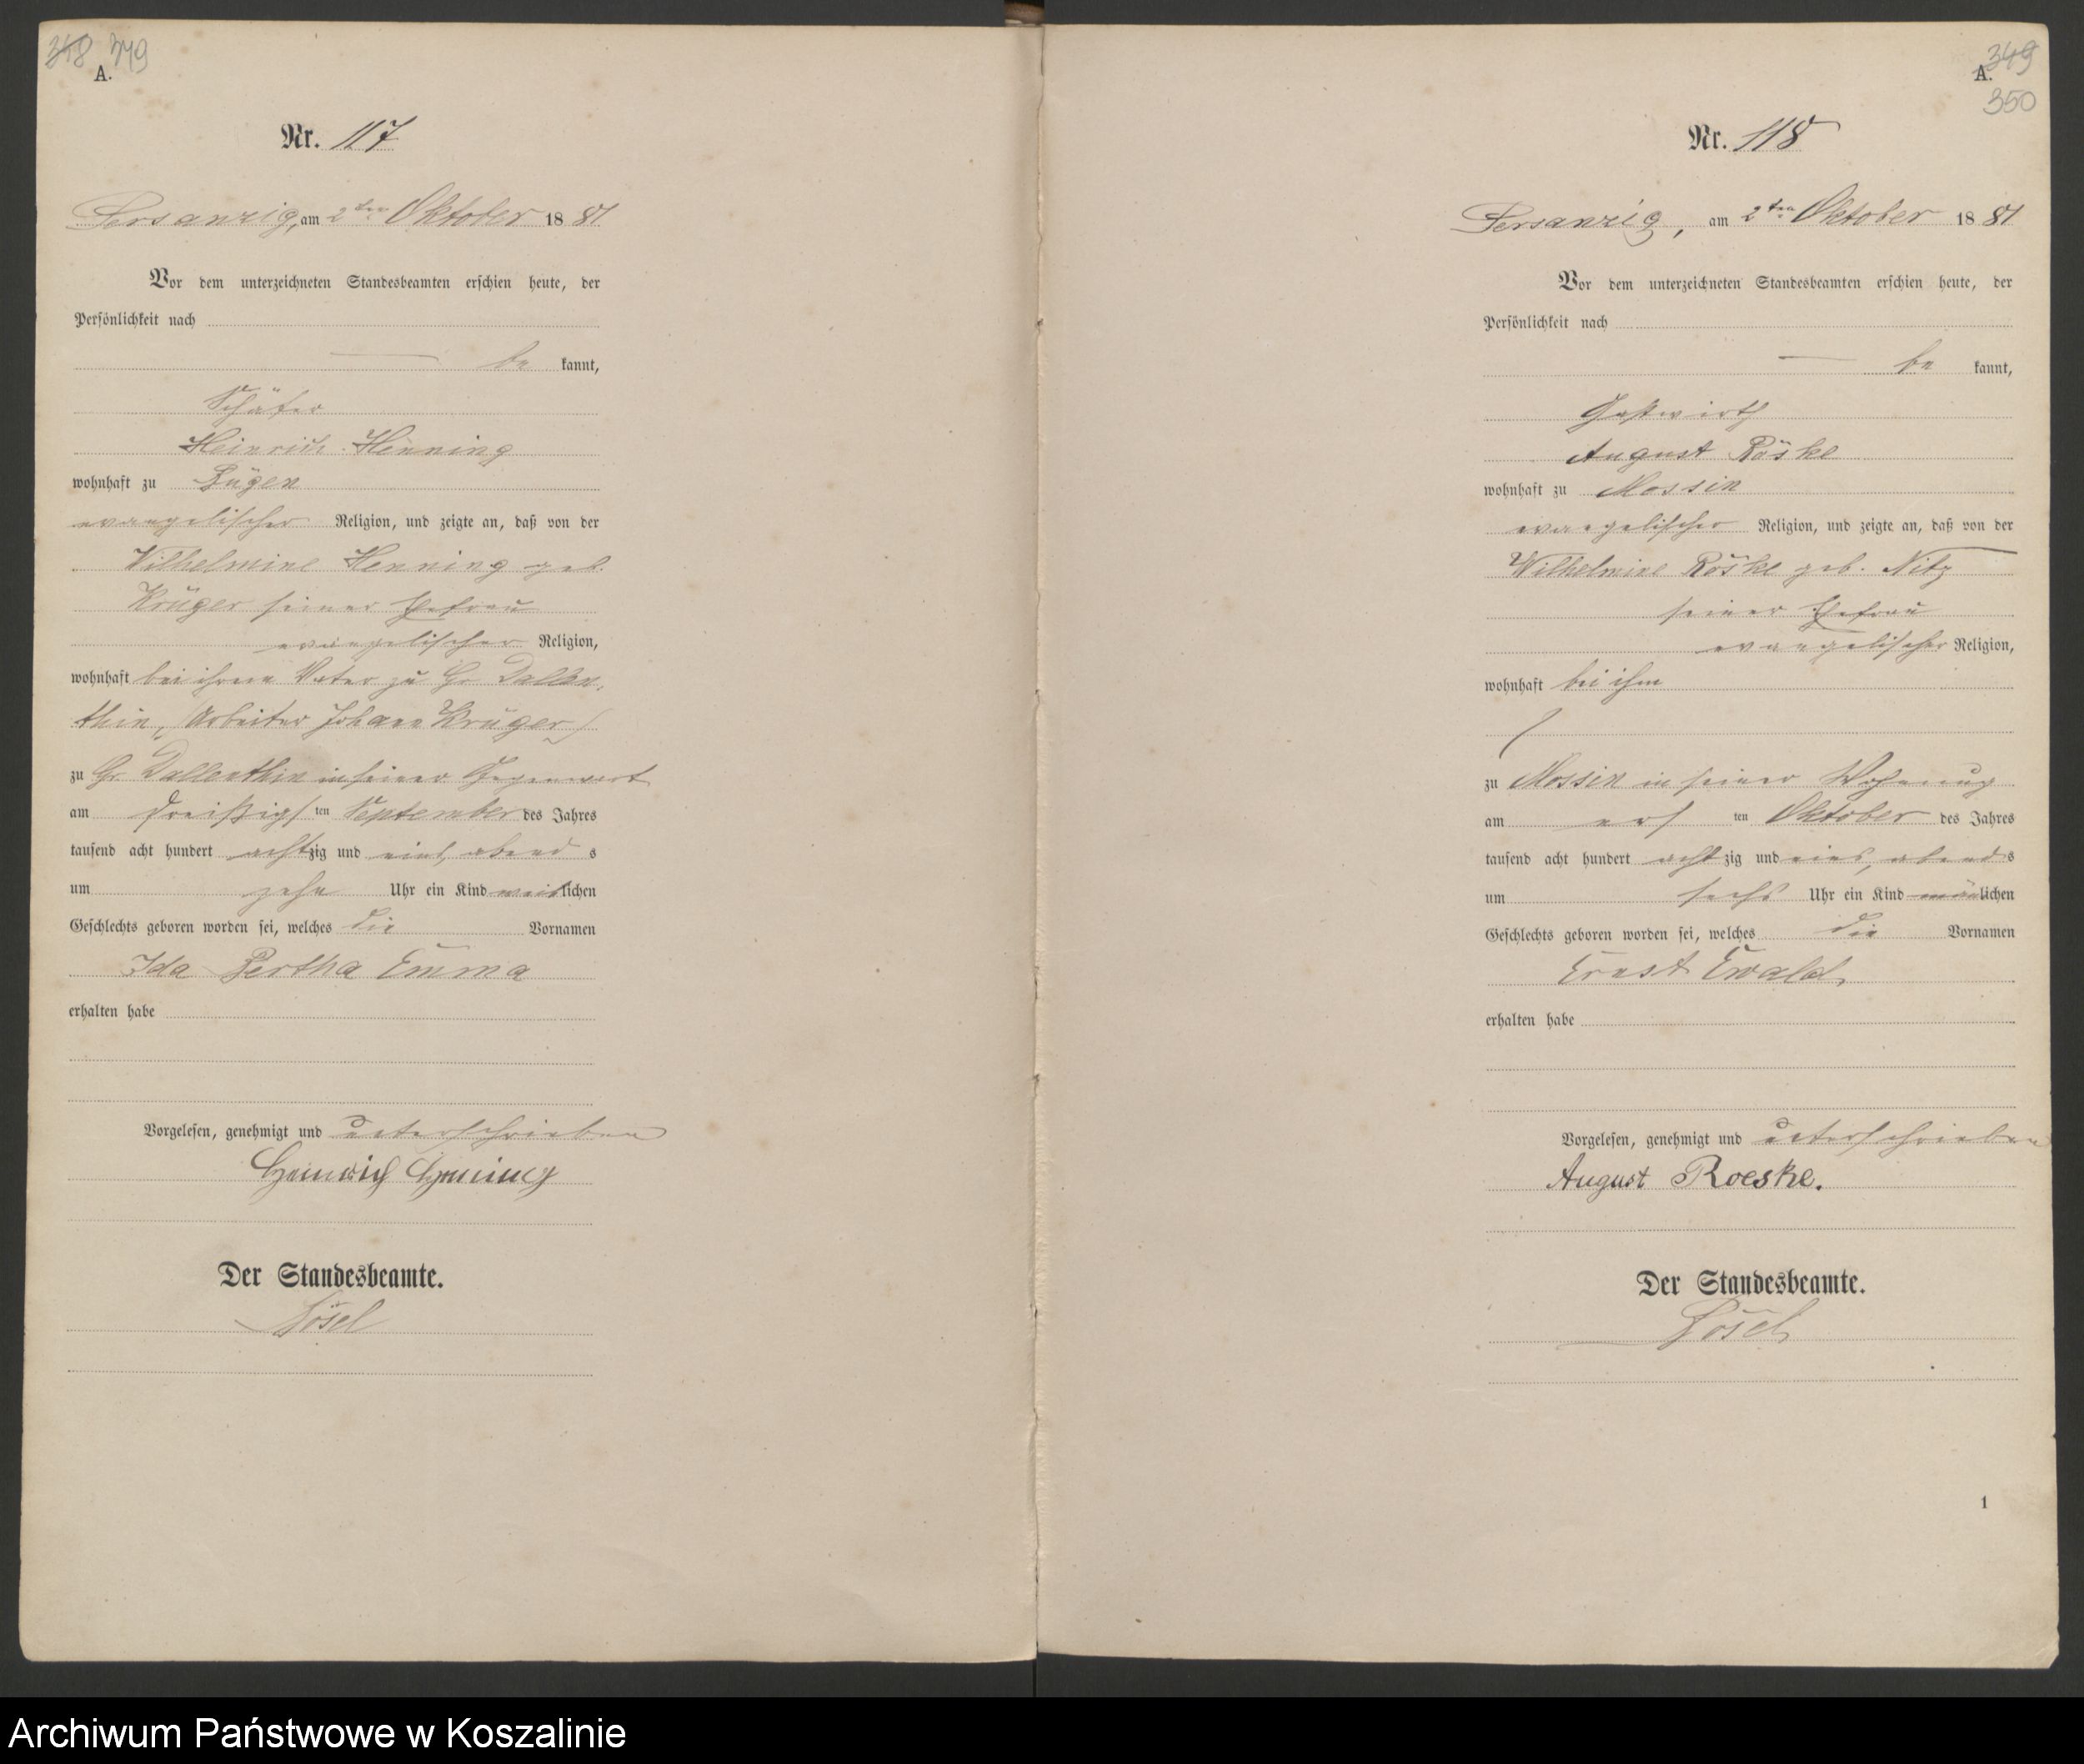 348 349
A.
Nr. 117
Persanzig, am 2ten Oktober 1881
Vor dem unterzeichneten Standesbeamten erschien heute, der
Persönlichkeit nach
be kannt,
Schäfer
Heinrich Henning
wohnhaft zu Lügen
evangelischer Religion, und zeigte an, daß von der
Wilhelmine Henning geb.
Krüger seiner Ehefrau
evangelischer Religion,
wohnhaft bei ihrem Vater zu Gr Dallen
thin, (Arbeiter Johann Krüger)
zu Gr Dallenthin in seiner Gegenwart
am dreißigs ten September des Jahres
tausend acht hundert achtzig und eins, abend s
um zehn Uhr ein Kind weiblichen
Geschlechts geboren worden sei, welches die Vornamen
Ida Bertha Emma
erhalten habe
Vorgelesen, genehmigt und unterschrieben
Heinrich Henning
Der Standesbeamte.
Lösel
349
A.
350
Nr. 118
Persanzig, am 2ten Oktober 1881
Vor dem unterzeichneten Standesbeamten erschien heute, der
Persönlichkeit nach
be kannt,
Gastwirth
August Röske
wohnhaft zu Mossin
evangelischer Religion, und zeigte an, daß von der
Wilhelmine Röske geb. Nitz
seiner Ehefrau
evangelischer Religion,
wohnhaft bei ihm
zu Mossin in seiner Wohnung
am ers ten Oktober des Jahres
tausend acht hundert acht zig und eins, abends
um sechs Uhr ein Kind mänlichen
Geschlechts geboren worden sei, welches die Vornamen
Ernst Ewald
erhalten habe
Vorgelesen, genehmigt und unterschrieben
August Roeske.
Der Standesbeamte.
Lösel
1
Archiwum Państwowe w Koszalinie